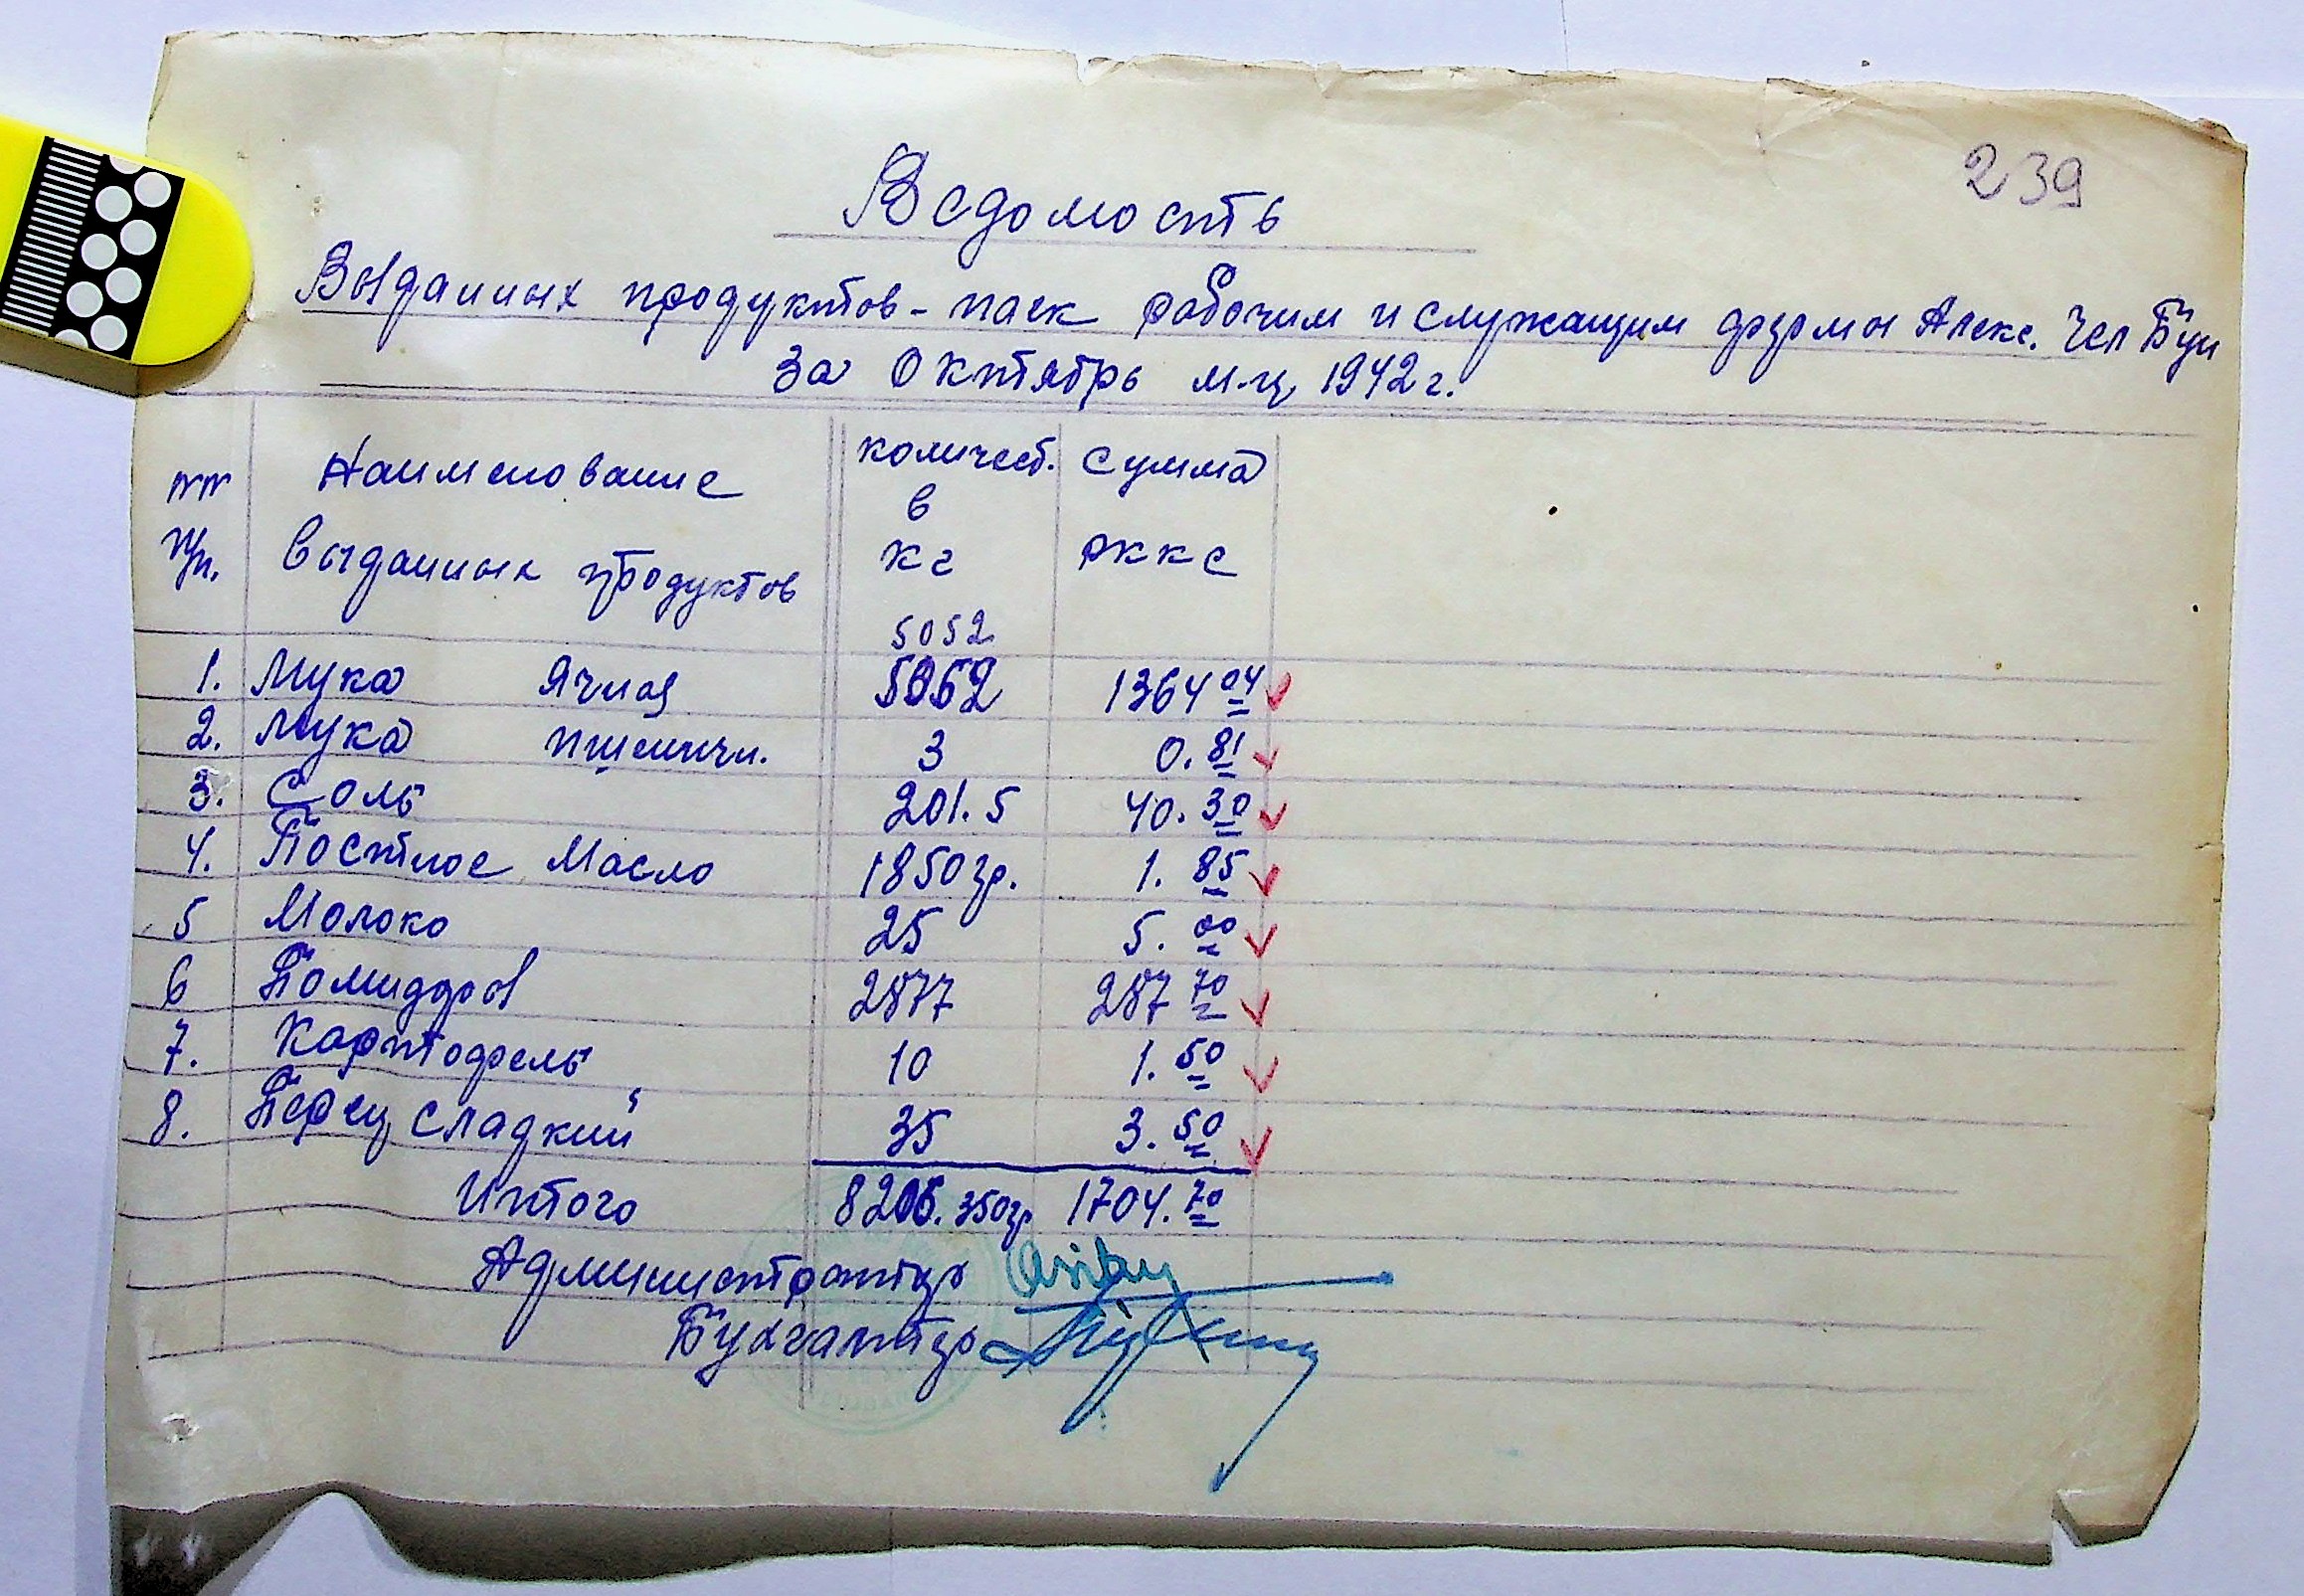 239
Ведомость
Выданных продуктов - паек рабочим и служащим фермы Алекс.
За Октябрь м-ц 1942 г.
№№ п/п. Наименование выданных продуктов количест. в кг сумма РККС
5052
1. Мука Ячная 5052 1364 04
2. Мука пшеничн. 3 0. 81
3. Соль 201.5 40. 30
4. Постное Масло 1850 гр. 1. 85
5 Молоко 25 5. 00
6 Помидоры 2877 287 70
7. Картофель 10 1. 50
8. Перец сладкий 35 3. 50
Итого 8205.350гр 1704. 70
Администратор
Бухгалтер